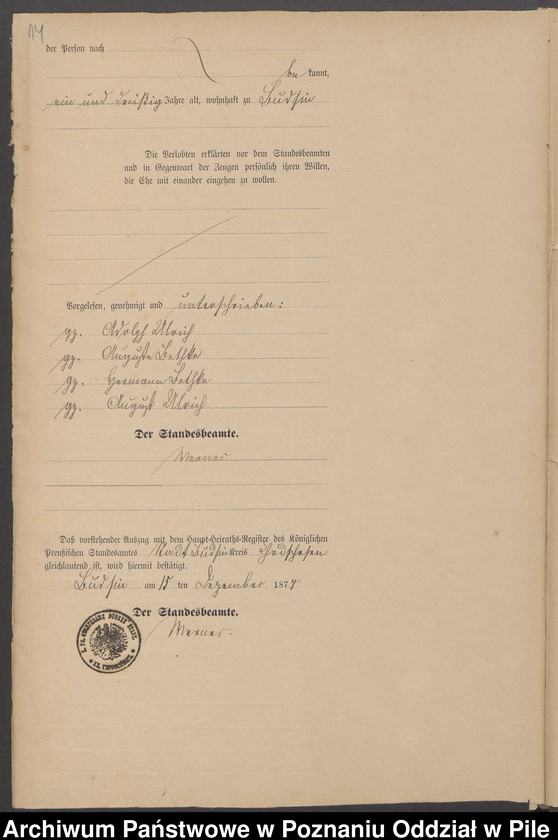 14
der Person nach
be kannt,
ein und dreißig Jahre alt, wohnhaft zu Budsin
Die Verlobten erklärten vor dem Standesbeamten
und in Gegenwart der Zeugen persönlich ihren Willen,
die Ehe mit einander eingehen zu wollen.
Vorgelesen, genehmigt und unterschrieben:
gz. Adolph Ulrich
gz. Auguste Bethke
gz. Hermann Bethke
gz. August Ulrich
Der Standesbeamte.
Werner
Daß vorstehender Auszug mit dem Haupt-Heiraths-Register des Königlichen
Preußischen Standesamtes Stadt Budsin Kreis Chodschesen
gleichlautend ist, wird hiermit bestätigt.
Budsin am 15 ten Dezember 1877
Der Standesbeamte.
Werner.
Archiwum Państwowe w Poznaniu Oddział w Pile